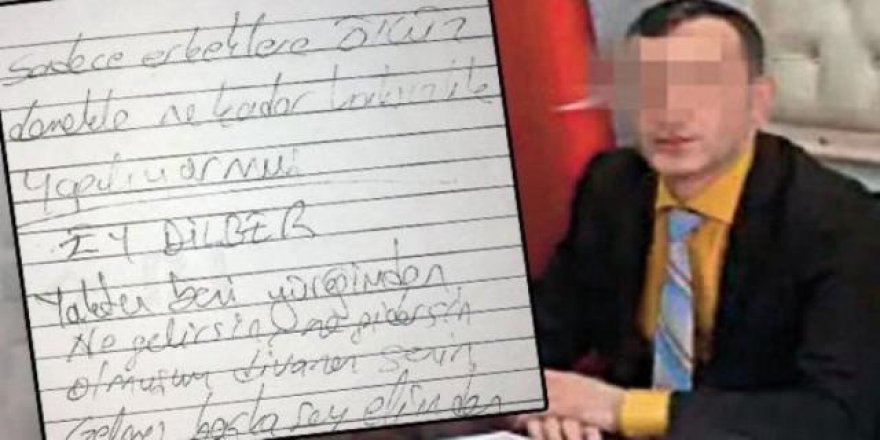 Sadece erkeklere ÖKÜZ
demekle ne kadar haksızlık
yapılıyormuş
EY DİLBER
Yaktın beni yüreğimden
Ne gelirsin ne gidersin
olmuşum divanen senin
başka şey elinden